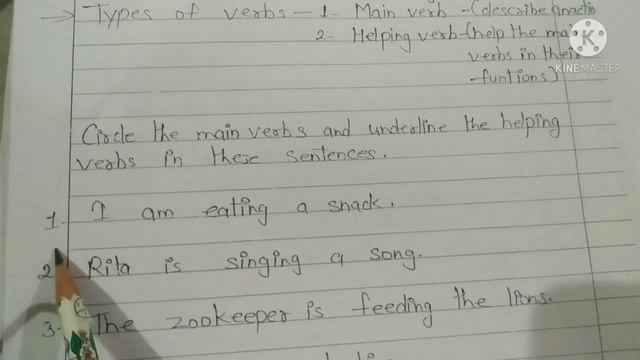 → Types of verbs - 1- Main verb - (describe
2- Helping verb - (help the main
verbs in their
-funtions)
KINEMASTER
Circle the main verbs and underline the helping
verbs in these sentences.
1. I am eating a snack.
2 Rita is singing a song.
3. The zookeeper is feeding the lions.